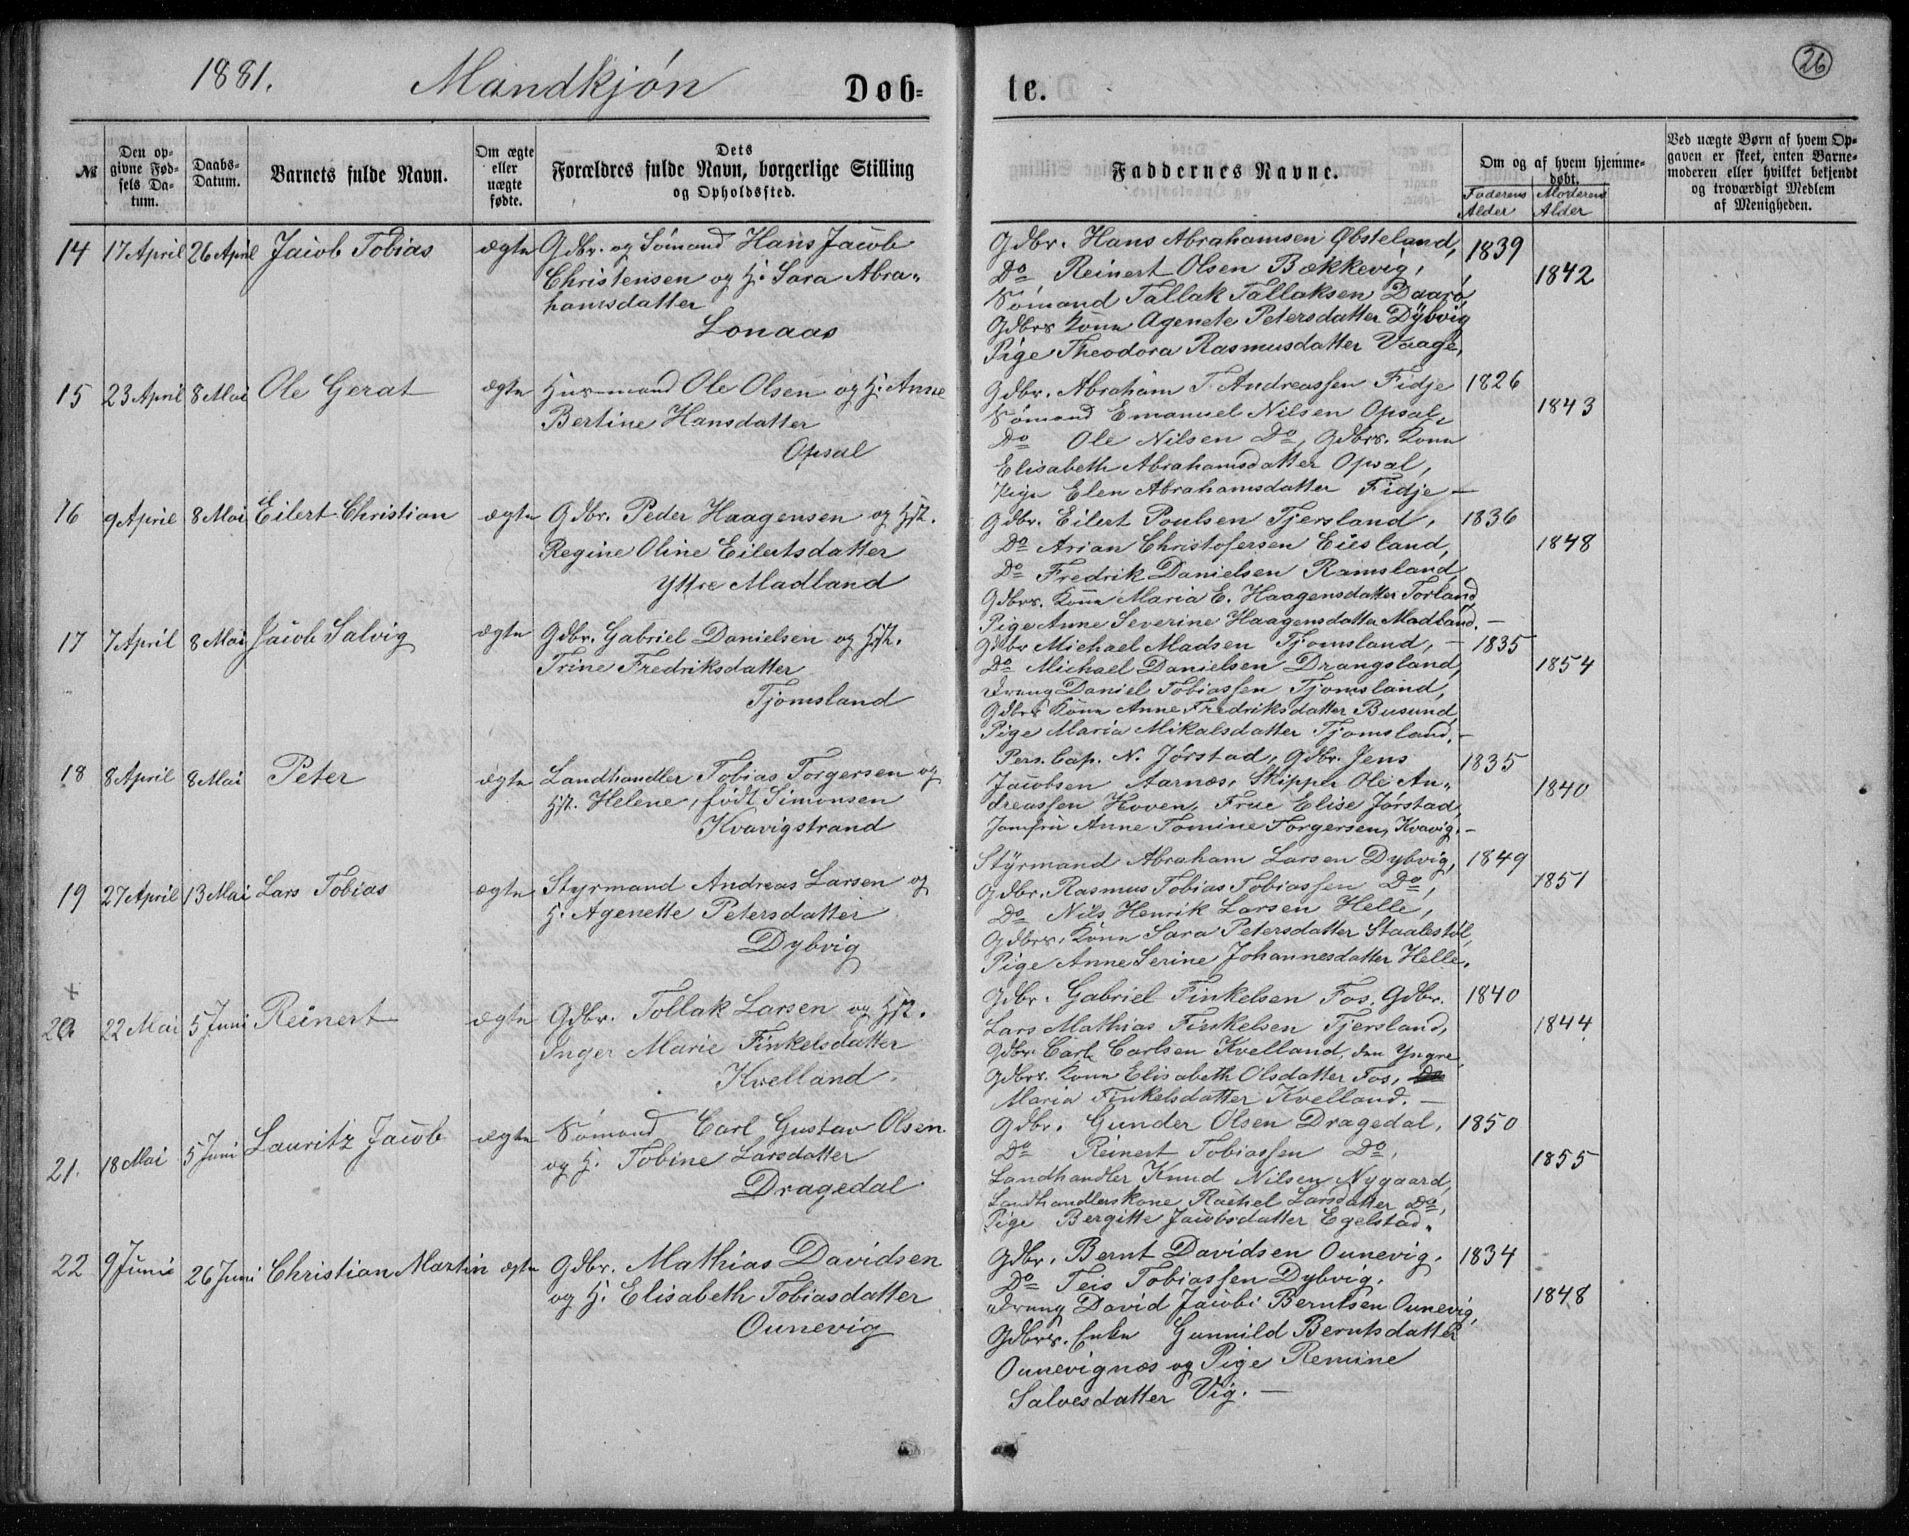 1881. Mandkjøn Døb= te. 26
№ Den op- givne Fød- sels Da- tum. Daabs- Datum. Barnets fulde Navn. Om ægte eller uægte fødte. Dets Forældres fulde Navn, borgerlige Stilling og Opholdssted. Faddernes Navne. Om og af hvem hjemme- døbt. Ved uægte Børn af hvem Op- gaven er skeet, enten Barne- moderen eller hvilket bekjendt og troværdigt Medlem af Menigheden.
Faderens Alder Moderens Alder
14 17 April 26 April Jacob Tobias ægte Gdbr. og Sømand Hans Jacob
Christensen og H. Sara Abra-
hamsdatter
Lonaas
Gdbr. Hans Abrahamsen Øbsteland, 1839
Do Reinert Olsen Bækkevig, 1842
Sømand Tallak Tallaksen Daarø
Gdbrs Kone Agenete Petersdatter Dybvig
Pige Theodora Rasmusdatter Vaage,
15 23 April 8 Mai Ole Gerat ægte Husmand Ole Olsen og H. Anne
Bertine Hansdatter
Opsal
Gdbr. Abraham T. Andreassen Fidje 1826
Sømand Emanuel Nilsen Opsal, 1843
Do Ole Nilsen Do, Gdbrs. Kone
Elisabeth Abrahamsdatter Opsal,
Pige Elen Abrahamsdatter Fidje —
16 9 April 8 Mai Eilert Christian ægte Gdbr. Peder Haagensen og Hst.
Regine Oline Eilertsdatter
Yttre Madland
Gdbr. Eilert Poulsen Tjersland, 1836
Do Arian Christofersen Eiesland, 1848
Do Fredrik Danielsen Ramsland,
Gdbrs. Kone Maria E. Haagensdatter Torland
Pige Anne Severine Haagensdatter Madland. —
17 7 April 8 Mai Jacob Salvig ægte Gdbr. Gabriel Danielsen og Hst.
Trine Fredriksdatter
Tjomsland
Gdbr Michael Madsen Tjomsland, — 1835
Do Michael Danielsen Drangsland, 1854
Dreng Daniel Tobiassen Tjomsland,
Gdbrs Kone Anne Fredriksdatter Busund,
Pige Maria Mikalsdatter Tjomsland. —
18 8 April 8 Mai Peter ægte Landhandler Tobias Torgersen og
Hst. Helene, født Simonsen
Kvavigstrand
Pers. Cap. N. Jørstad, Gdbr. Jens 1835
Jacobsen Aarnæs, Skipper Ole An- 1840
dreassen Hoven, Frue Elise Jørstad,
Jomfru Anne Tomine Torgersen, Kvavig. —
19 27 April 13 Mai Lars Tobias ægte Styrmand Andreas Larsen og
H. Agenette Petersdatter
Dybvig
Styrmand Abraham Larsen Dybvig, 1849
Gdbr. Rasmus Tobias Tobiassen Do, 1851
Do Nils Henrik Larsen Helle,
Gdbrs. Kone Sara Petersdatter Staalestøl,
Pige Anne Serine Johannesdatter Helle.
+
20 22 Mai 5 Juni Reinert ægte Gdbr. Tollak Larsen og Hst.
Inger Marie Finkelsdatter
Kvelland.
Gdbr. Gabriel Finkelsen Fos, Gdbr. 1840
Lars Mathias Finkelsen Tjersland, 1844
Gdbr Carl Carlsen Kvelland, den Yngre
Gdbrs. Kone Elisabeth Olsdatter Fos, Do
Maria Finkelsdatter Kvelland. —
21. 18 Mai 5 Juni Lauritz Jacob ægte Sømand Carl Gustav Olsen
og H. Tobine Larsdatter
Dragedal
Gdbr. Gunder Olsen Dragedal, 1850
Do Reinert Tobiassen Do, 1855
Landhandler Knud Nilsen Nygaard,
Landhandlerskone Rachel Larsdatter Do,
Pige Bergitte Jacobsdatter Egelstad.
22 9 Juni 26 Juni Christian Martin ægte Gdbr. Mathias Davidsen
og H. Elisabeth Tobiasdatter
Ounevig
Gdbr. Bernt Davidsen Ounevig, 1834
Do Teis Tobiassen Dybvig, 1848
Dreng David Jacobi Berntsen Ounevig,
Gdbrs. Enke Gunnild Berntsdatter
Ounevignæs og Pige Remine
Salvesdatter Vig. —